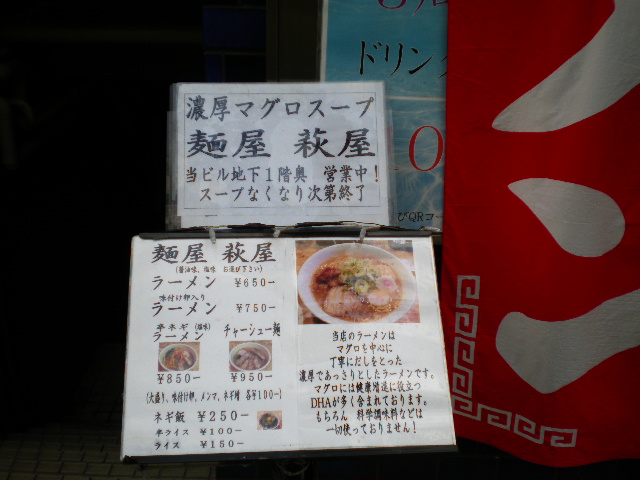 濃厚マグロスープ
麺屋 萩屋
当ビル地下1階奥 営業中!
スープなくなり次第終了
ドリン
びQRコー
麺屋 萩屋
(醤油味、塩味 お選び下さい)
ラーメン ¥650-
味付け卵入り
ラーメン ¥750-
辛ネギ(塩味) チャーシュー麺
ラーメン
¥850- ¥950-
(大盛り、味付け卵、メンマ、ネギ増 各¥100-)
ネギ飯 ¥250-
半ライス ¥100-
ライス ¥150-
当店のラーメンは
マグロを中心に
丁寧にだしをとった
濃厚であっさりとしたラーメンです。
マグロには健康増進に役立つ
DHAが多く含まれております。
もちろん 科学調味料などは
一切使っておりません!